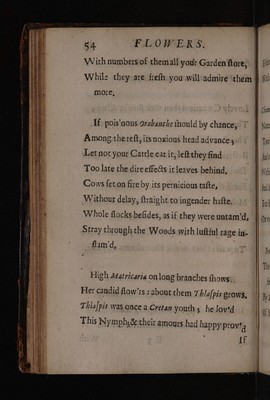 54 FLOWERS.
With numbers of them all your Garden ſtore,
While they are freſh you will admire them
more.
If pois'nous Orabanche ſhould by chance,
Among the reſt, its noxious head advance;
Let not your Cattle eat it, leſt they find
Too late the dire effects it leaves behind.
Cows ſet on fire by its pernicious taſte,
Without delay, ſtraight to ingender haſte.
Whole flocks beſides, as if they were untam'd,
Stray through the Woods with luſtful rage in-
flam'd.
High Matricaria on long branches ſhows
Her candid flow'rs: about them Thlaſpis grows.
Thlaſpis was once a Cretan youth; he lov'd
This Nymph; & their amours had happy prov'd
If